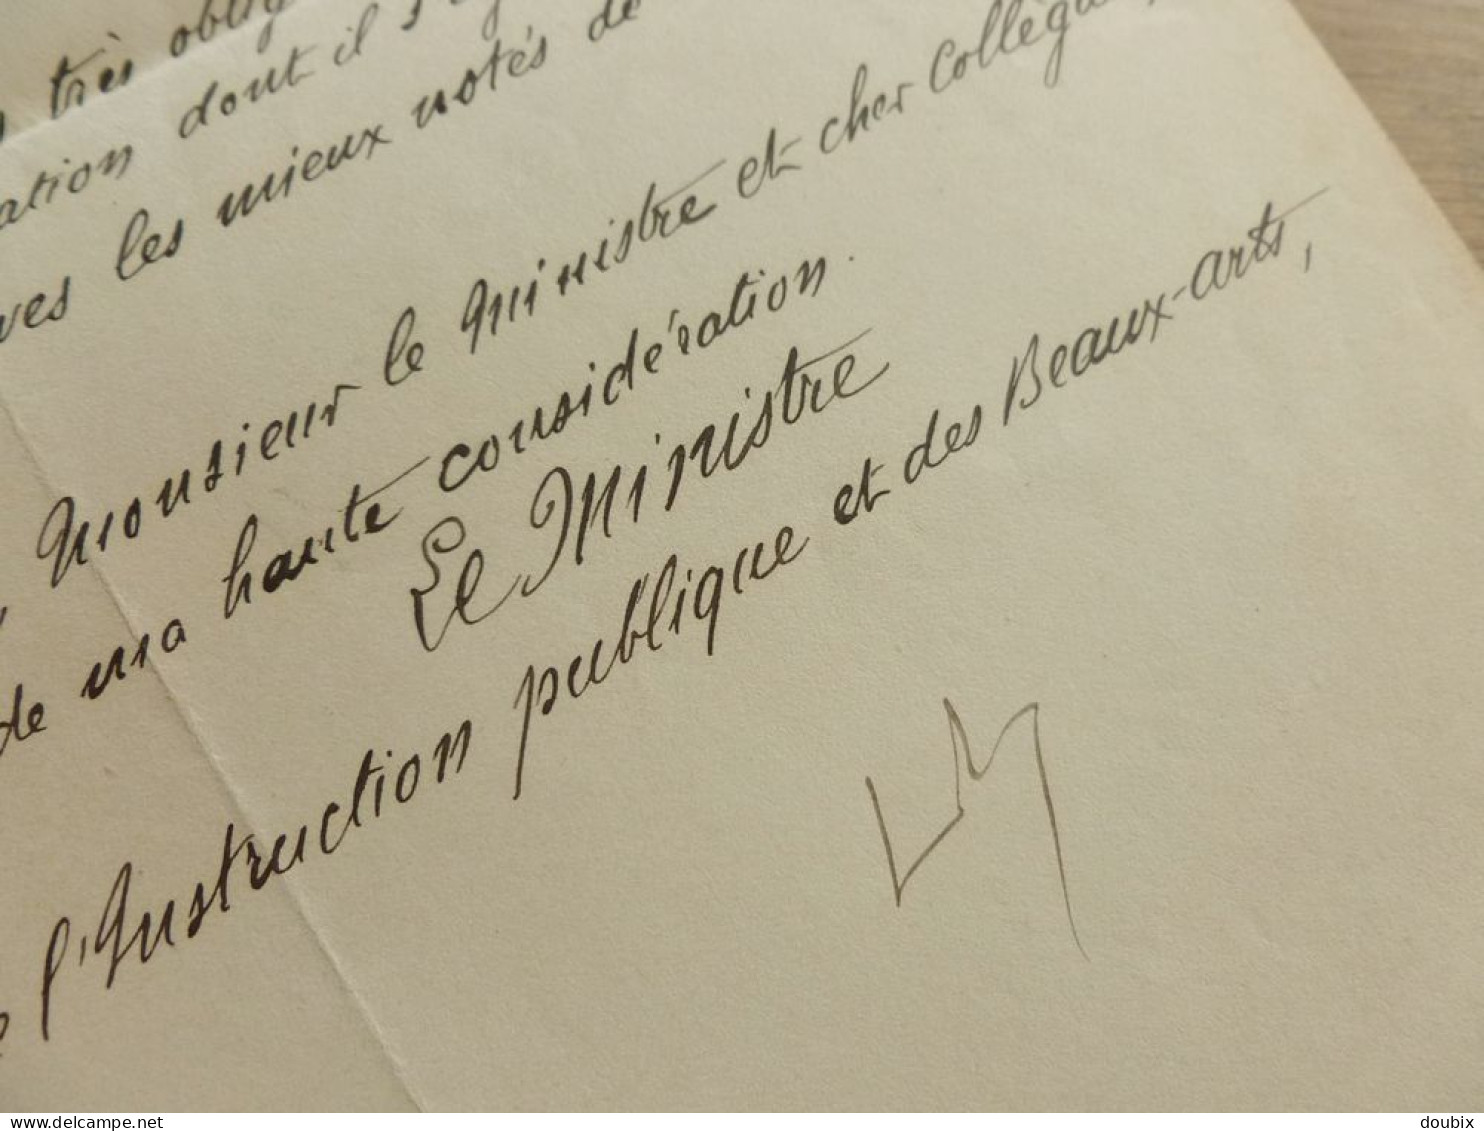 très oblig
ation dont il s'ag
ves les mieux notés de
, Monsieur le Ministre et cher Collègue,
de ma haute considération.
Le Ministre
l'Instruction publique et des Beaux-arts,
delcampe.net
doubix